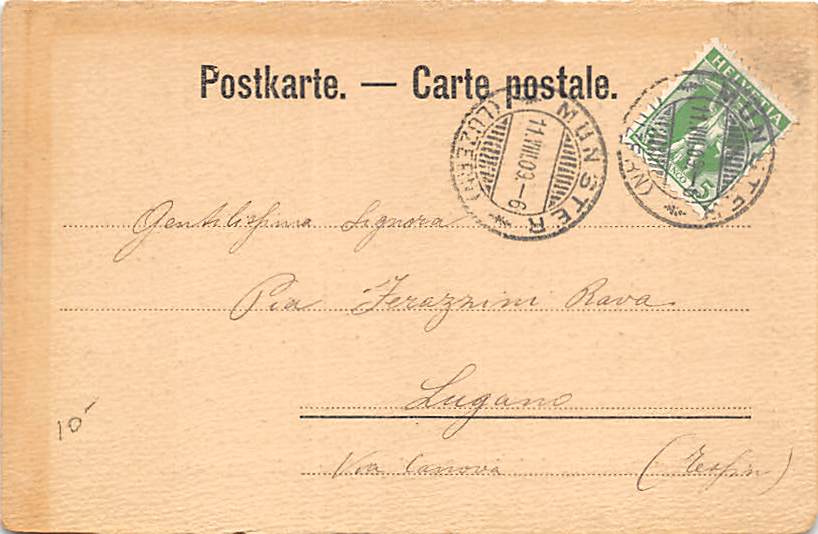 Postkarte. — Carte postale.
HELVETIA
5
MÜNSTER
(LUZERN)
11.VIII.09.-6
MÜNSTER
Gentilissima Signora
Pia Ferazzini Rava
Lugano
Via Canova (Tessin)
10-